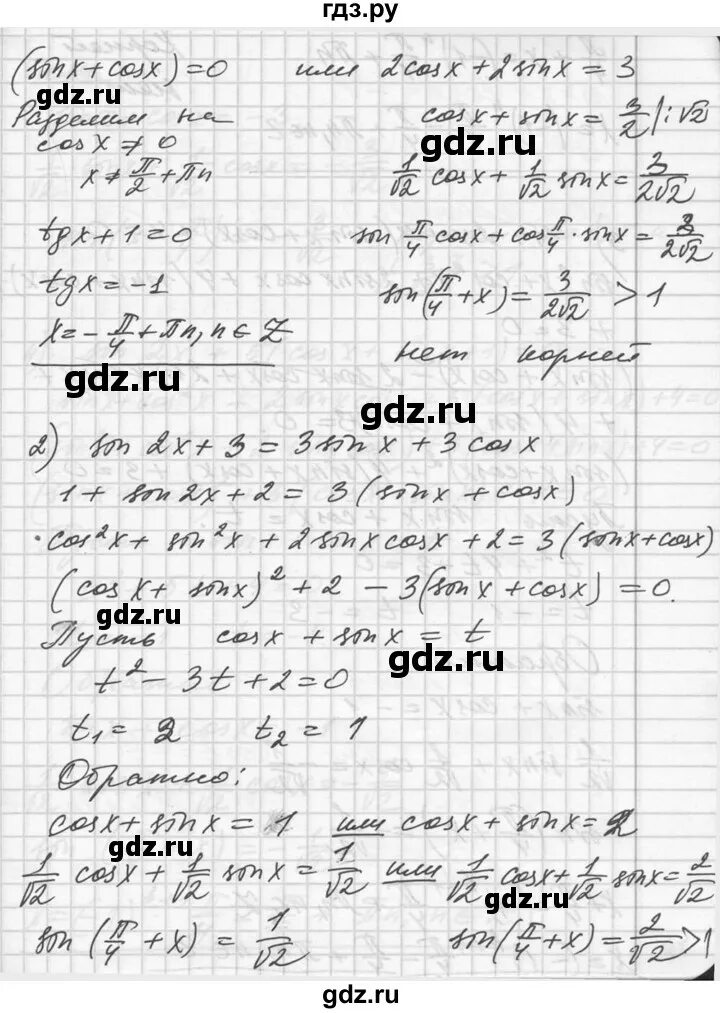 гдз.ру
(sinx+cosx)=0 или 2cosx+2sinx=3
gdz.ru
Разделим на cosx+sinx= 3/2 |:√2
cosx≠0
gdz.ru
x≠π/2+πn 1/√2 cosx+ 1/√2 sinx= 3/2√2
tgx+1=0 sin π/4 cosx+cos π/4·sinx= 3/2√2
gdz.ru gdz.ru
tgx=-1 sin(π/4+x)= 3/2√2 >1
x=-π/4+πn, n∈Z нет корней
gdz.ru
gdz.ru
2) sin 2x+3=3sinx+3cosx
1+sin2x+2=3(sinx+cosx)
cos²x+sin²x+2sinxcosx+2=3(sinx+cosx)
(cosx+sinx)²+2-3(sinx+cosx)=0.
gdz.ru
Пусть cosx+sinx=t
gdz.ru
t²-3t+2=0
t₁=2 t₂=1
Обратно:
cosx+sinx=1 или cosx+sinx=2
gdz.ru
1/√2 cosx+ 1/√2 sinx= 1/√2 или 1/√2 cosx+ 1/√2 sinx= 2/√2
gdz.ru
sin(π/4+x)= 1/√2 sin(π/4+x)= 2/√2 >1
gdz.ru
gdz.ru